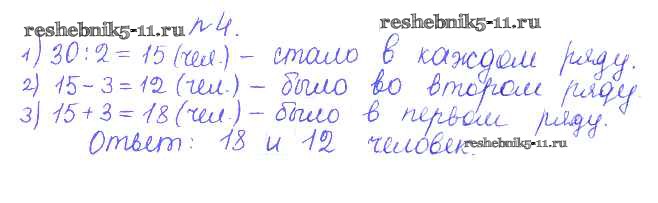 reshebnik5-11.ru №4. reshebnik5-11.ru
1) 30 : 2 = 15 (чел.) – стало в каждом ряду.
2) 15 – 3 = 12 (чел.) – было во втором ряду.
3) 15 + 3 = 18 (чел.) – было в первом ряду.
Ответ: 18 и 12 человек. reshebnik5-11.ru